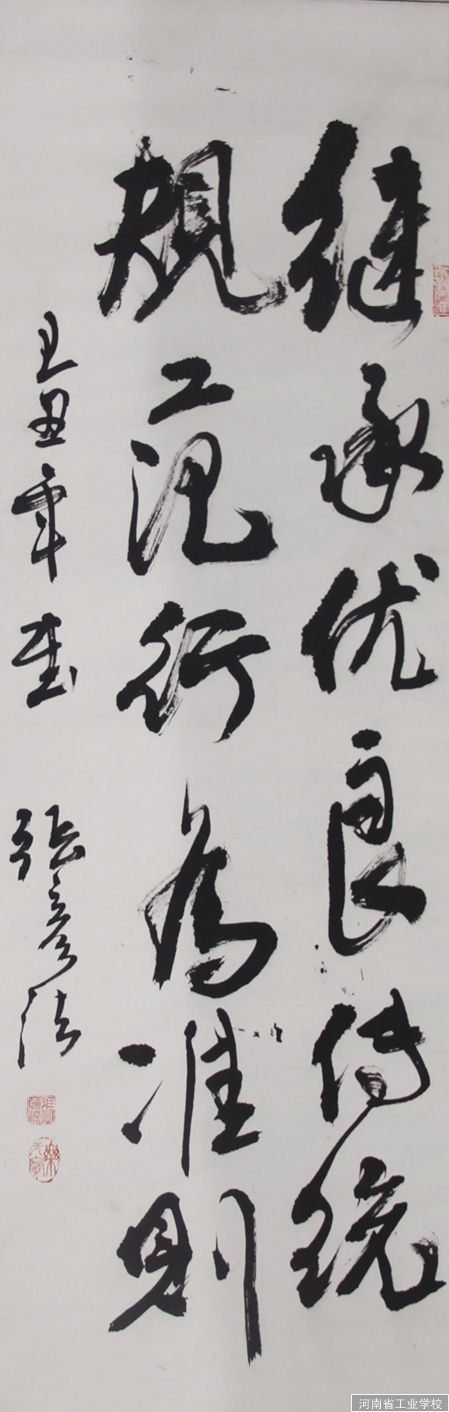 继承优良传统
规范行為准则
己丑年
张彦法
河南省工业学校